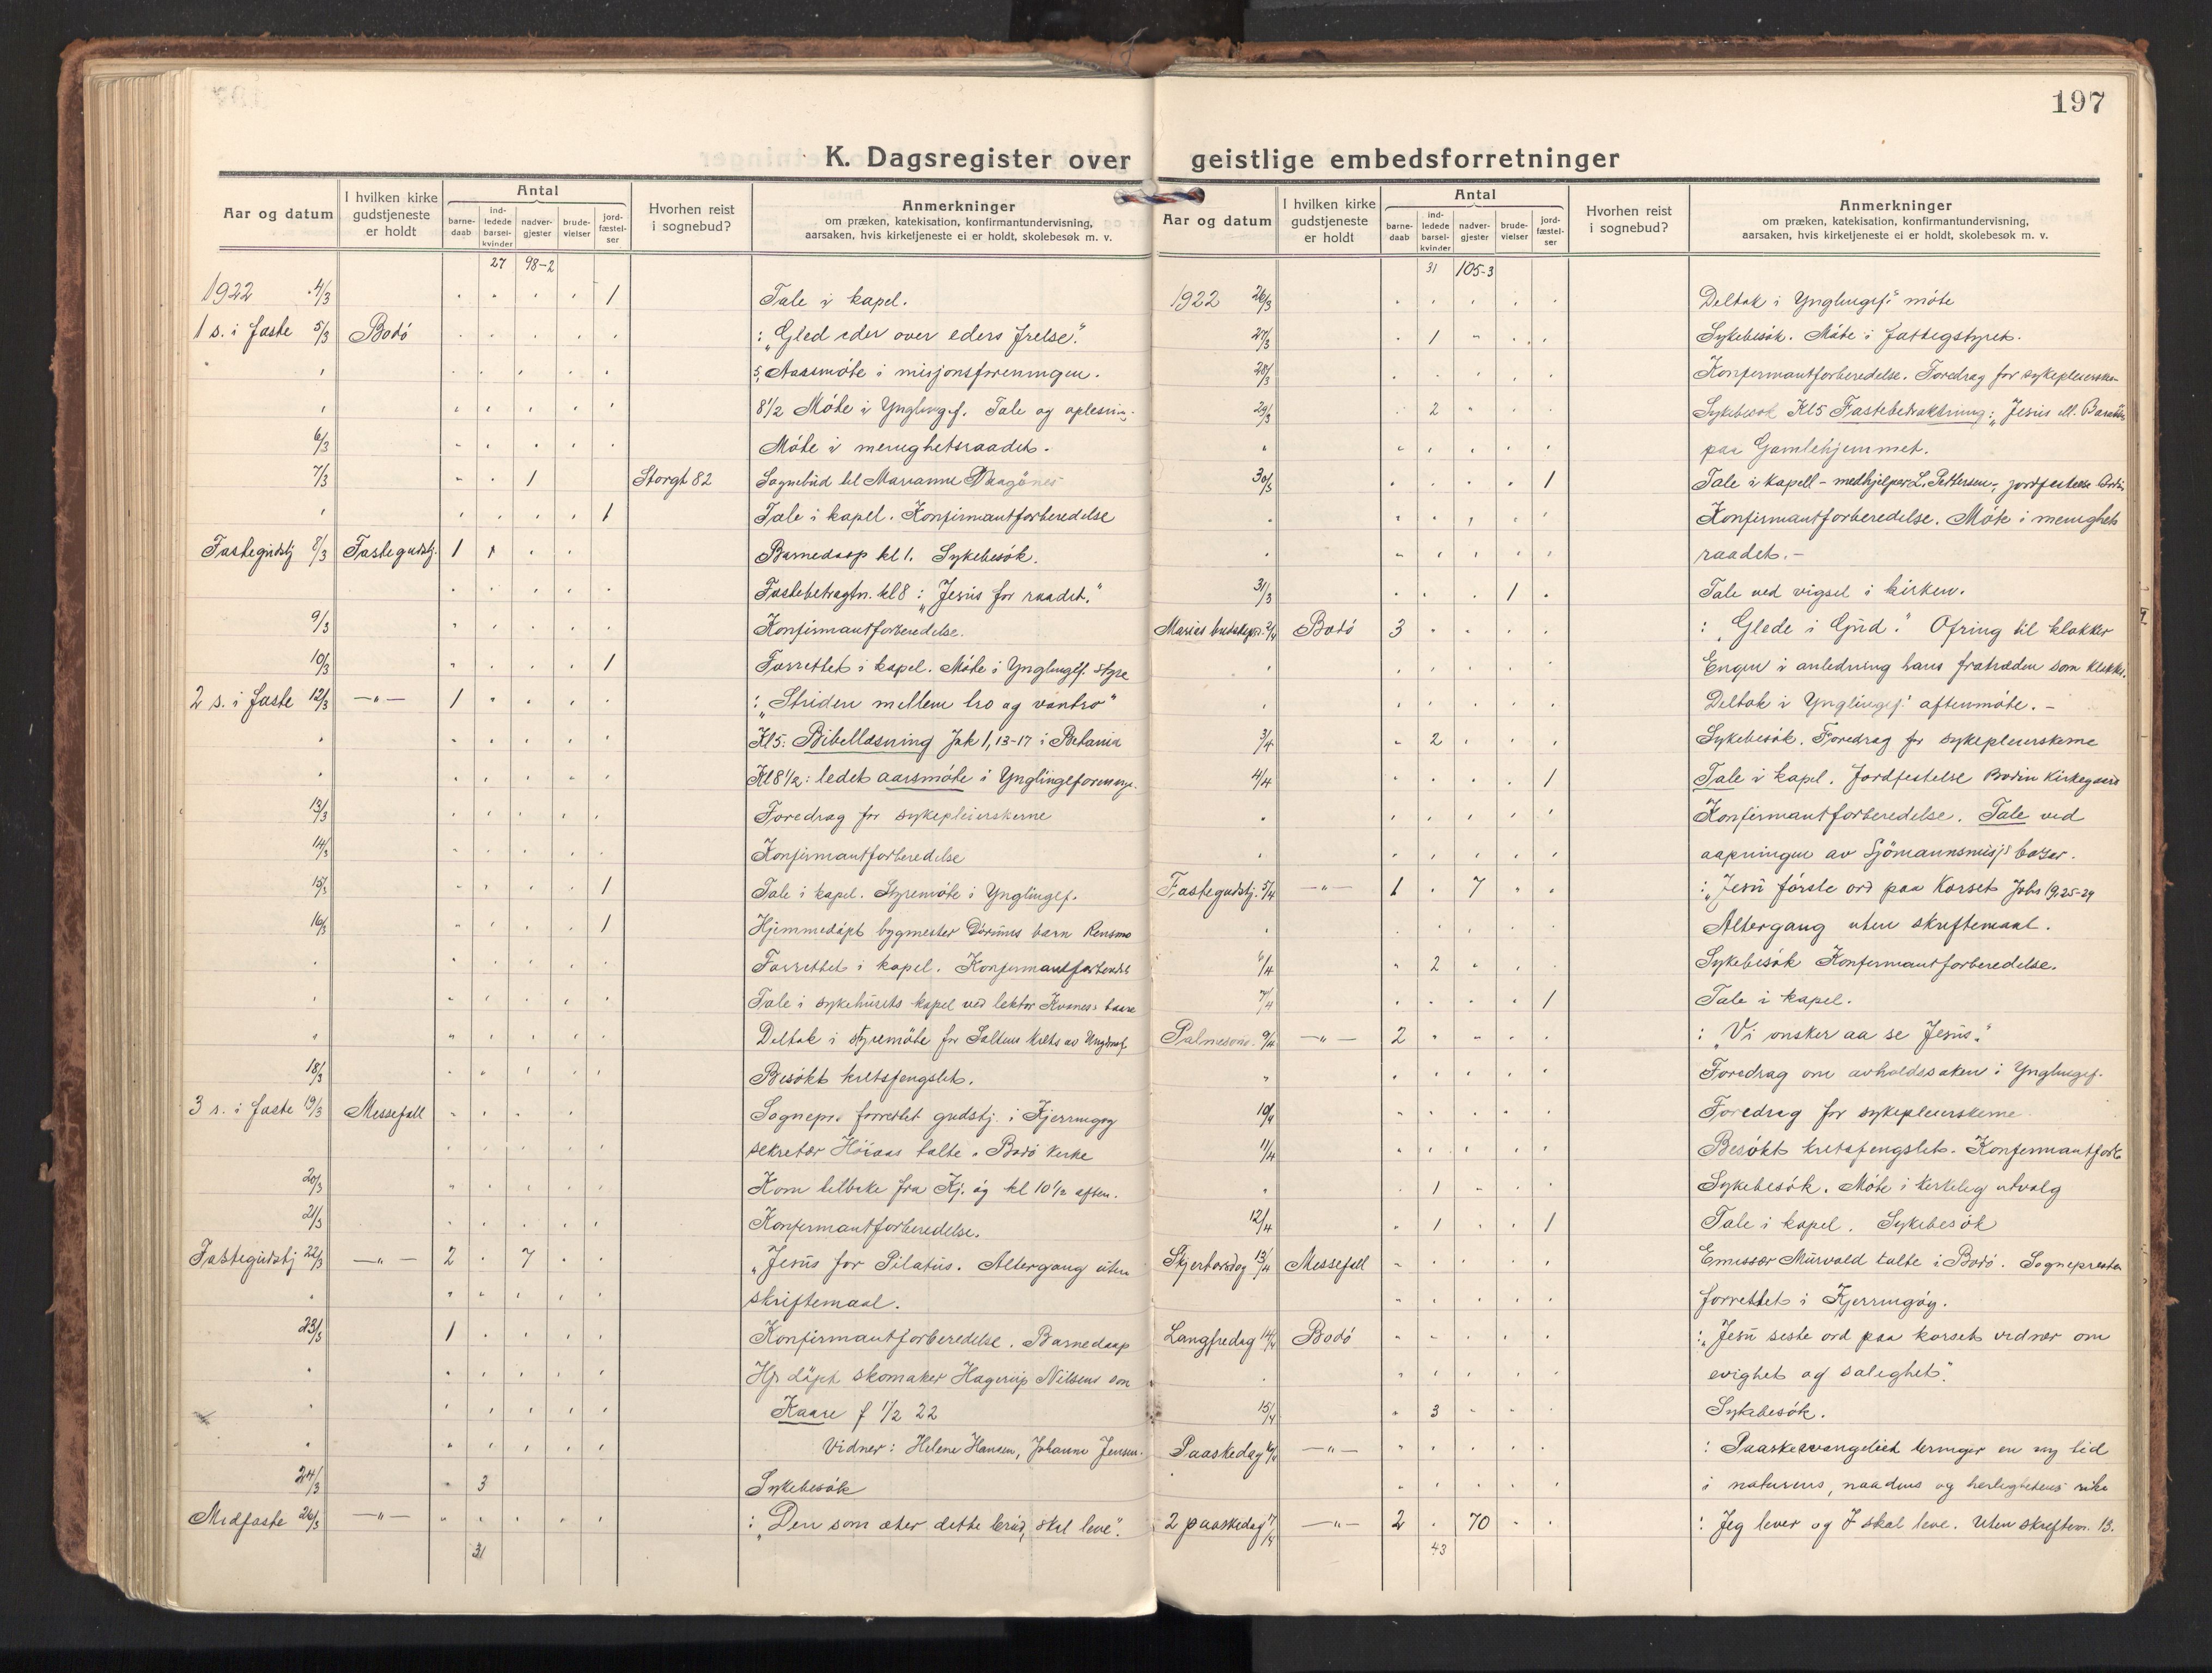 197
K. Dagsregister over geistlige embedsforretninger
Aar og datum
I hvilken kirke gudstjeneste er holdt
Antal
barne-daab
ind-ledede barsel-kvinder
nadver-gjester
brude-vielser
jord-fæstel-ser
Hvorhen reist i sognebud?
Anmerkninger
om præken, katekisation, konfirmantundervisning,
aarsaken, hvis kirketjeneste ei er holdt, skolebesøk m. v.
27 98-2
1922 4/3 1 Tale i kapel.
1 s. i faste 5/3 Bodö : „Gled eder over eders frelse."
5, Aarsmöte i misjonsforeningen.
8 1/2 Möte i Ynglingef. Tale og oplesning.
6/3 Möte i menighetsraadet.
7/3 1 Storgt 82 Sognebud til Marianne
1 Tale i kapel. Konfirmantforberedelse
Fastegudstj 8/3 Fastegudstj. 1 1 Barnedaap kl 1. Sykebesök.
Fastebetragtn. kl 8 : „Jesus for raadet."
9/3 Konfirmantforberedelse.
10/3 1 Forrettet i kapel. Möte i Ynglingef. styre
2 s. i faste 12/3 —„— 1 : „Striden mellem tro og vantro"
Kl 5: Bibellæsning Jak 1, 13-17 i Betania
Kl 8 1/2: ledet aarsmöte i Ynglingeforening.
13/3 Foredrag for sykepleierskerne
14/3 Konfirmantforberedelse
15/3 1 Tale i kapel. Styremöte i Ynglingef.
16/3 1 Hjemmedöpt bygmester barn
Forrettet i kapel. Konfirmantforbered.
Tale i sykehusets kapel ved lektor Kvanes's baare
Deltok i styremöte for Saltens krets av
18/3 Besökt kretsfengslet.
3 s. i faste 19/3 Messefall Sognepr. forrettet gudstj. i Kjerringöy
sekretær talte i Bodö kirke
20/3 Kom tilbake fra Kj. öy kl 10 1/2 aften.
21/3 Konfirmantforberedelse.
Fastegudstj 22/3 —„— 2 7 „Jesus for Pilatus. Altergang uten
skriftemaal.
23/3 1 Konfirmantforberedelse. Barnedaap
Hj. döpt skomaker Hagerup Nilsens sön
Kaare f 1/2 22
Vidner: Helene Hansen, Johanne Jensen.
24/3 3 Sykebesök
Midfaste 26/3 —„— : „Den som æter dette bröd, skal leve".
31
Aar og datum
I hvilken kirke gudstjeneste er holdt
Antal
barne-daab
ind-ledede barsel-kvinder
nadver-gjester
brude-vielser
jord-fæstel-ser
Hvorhen reist i sognebud?
Anmerkninger
om præken, katekisation, konfirmantundervisning,
aarsaken, hvis kirketjeneste ei er holdt, skolebesøk m. v.
31 105-3
1922 26/3 Deltok i Ynglingef.s möte
27/3 1 Sykebesök. Möte i fattigstyret.
28/3 Konfirmantforberedelse. Foredrag for sykepleiersker
29/3 2 Sykebesök Kl 5 Fastebetraktning: „Jesus ell. Barabbas
paa Gamlehjemmet.
30/3 1 Tale i kapell - medhjelper L. Pettersen, jordfestelse Bodin
Konfirmantforberedelse. Möte i menighets
raadet.-
31/3 1 Tale ved vigsel i kirken.
Marias budskapsd. 2/4 Bodö 3 : „Glede i Gud." Ofring til klokker
Engen i anledning hans fratræden som klokker.
Deltok i Ynglingef.s aftenmöte.-
3/4 2 Sykebesök. Foredrag for sykepleierskerne
4/4 1 Tale i kapel. Jordfestelse Bodin Kirkegaard
Konfirmantforberedelse. Tale ved
aapningen av Sjömannsmisj.s bazar.
Fastegudstj. 5/4 —„— 1 7 : „Jesu förste ord paa korset Johs 19,25-29
Altergang uten skriftemaal.
6/4 2 Sykebesök Konfirmantforberedelse.
7/4 1 Tale i kapel.
Palmesönd. 9/4 —„— 2 : „Vi önsker aa se Jesus."
Foredrag om avholdssaken i Ynglingef.
10/4 Foredrag for sykepleierskerne
11/4 Besökt kretsfengslet. Konfirmantforb.
1 Sykebesök. Möte i kirkelig utvalg
12/4 1 1 Tale i kapel. Sykebesök
Skjertorsdag 13/4 Messefall Emissær Murvold talte i Bodö. Sognepresten
forrettet i Kjerringöy.
Langfredag 14/4 Bodö : „Jesu siste ord paa korset vidner om
evighet og salighet".
15/4 3 Sykebesök.
Paaskedag 16/4 —„— : Paaskeevangeliet bringer en ny tid
i naturens, naadens og herlighetens rike
2 paaskedag 17/4 —„— 2 70 : Jeg lever og I skal leve. Uten skriftem. 13.
43